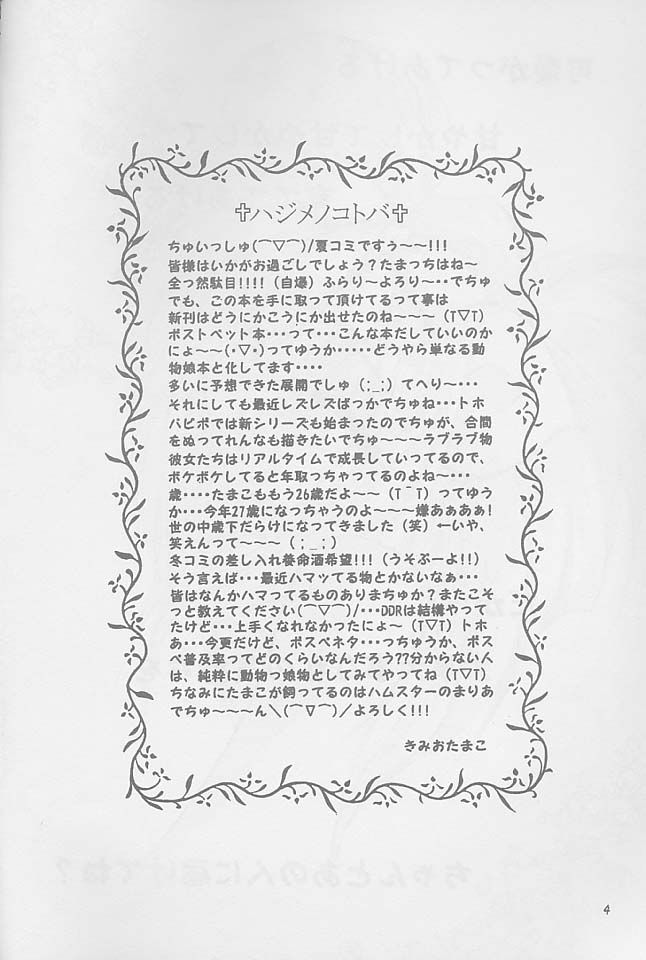 ✝ハジメノコトバ✝
ちゅいっしゅ(⌒▽⌒)/夏コミですぅ～～!!!
皆様はいかがお過ごしでしょう？たまっちはね～
全っ然駄目!!!!（自爆）ふらり～よろり～・・でちゅ
でも、この本を手に取って頂けてるって事は
新刊はどうにかこうにか出せたのね～～～（T▽T）
ポストペット本・・・って・・・こんな本だしていいのか
にょ～～(・▽・)ってゆうか・・・・・どうやら単なる動
物娘本と化してます・・・・
多いに予想できた展開でしゅ（;_;）てへり～・・・
それにしても最近レズレズばっかでちゅね・・・トホ
パピポでは新シリーズも始まったのでちゅが、合間
をぬってれんなも描きたいでちゅ～～～ラブラブ物
彼女たちはリアルタイムで成長していってるので、
ボケボケしてると年取っちゃってるのよね～・・・
歳・・・・たまこももう26歳だよ～～（T＾T）ってゆう
か・・・今年27歳になっちゃうのよ～～～～嫌あぁあぁ!
世の中歳下だらけになってきました（笑）←いや、
笑えんって～～～（;_;）
冬コミの差し入れ養命酒希望!!!（うそぷーよ!!）
そう言えば・・・最近ハマッてる物とかないなぁ・・・
皆はなんかハマってるものありまちゅか？またこそ
っと教えてください(⌒▽⌒)/・・・DDRは結構やって
たけど・・・上手くなれなかったにょ～（T▽T）トホ
あ・・・今更だけど、ポスペネタ・・・っちゅうか、ポス
ペ普及率ってどのくらいなんだろう??分からない人
は、純粋に動物っ娘物としてみてやってね（T▽T）
ちなみにたまこが飼ってるのはハムスターのまりあ
でちゅ～～～ん＼(⌒▽⌒)／よろしく!!!
きみおたまこ
4